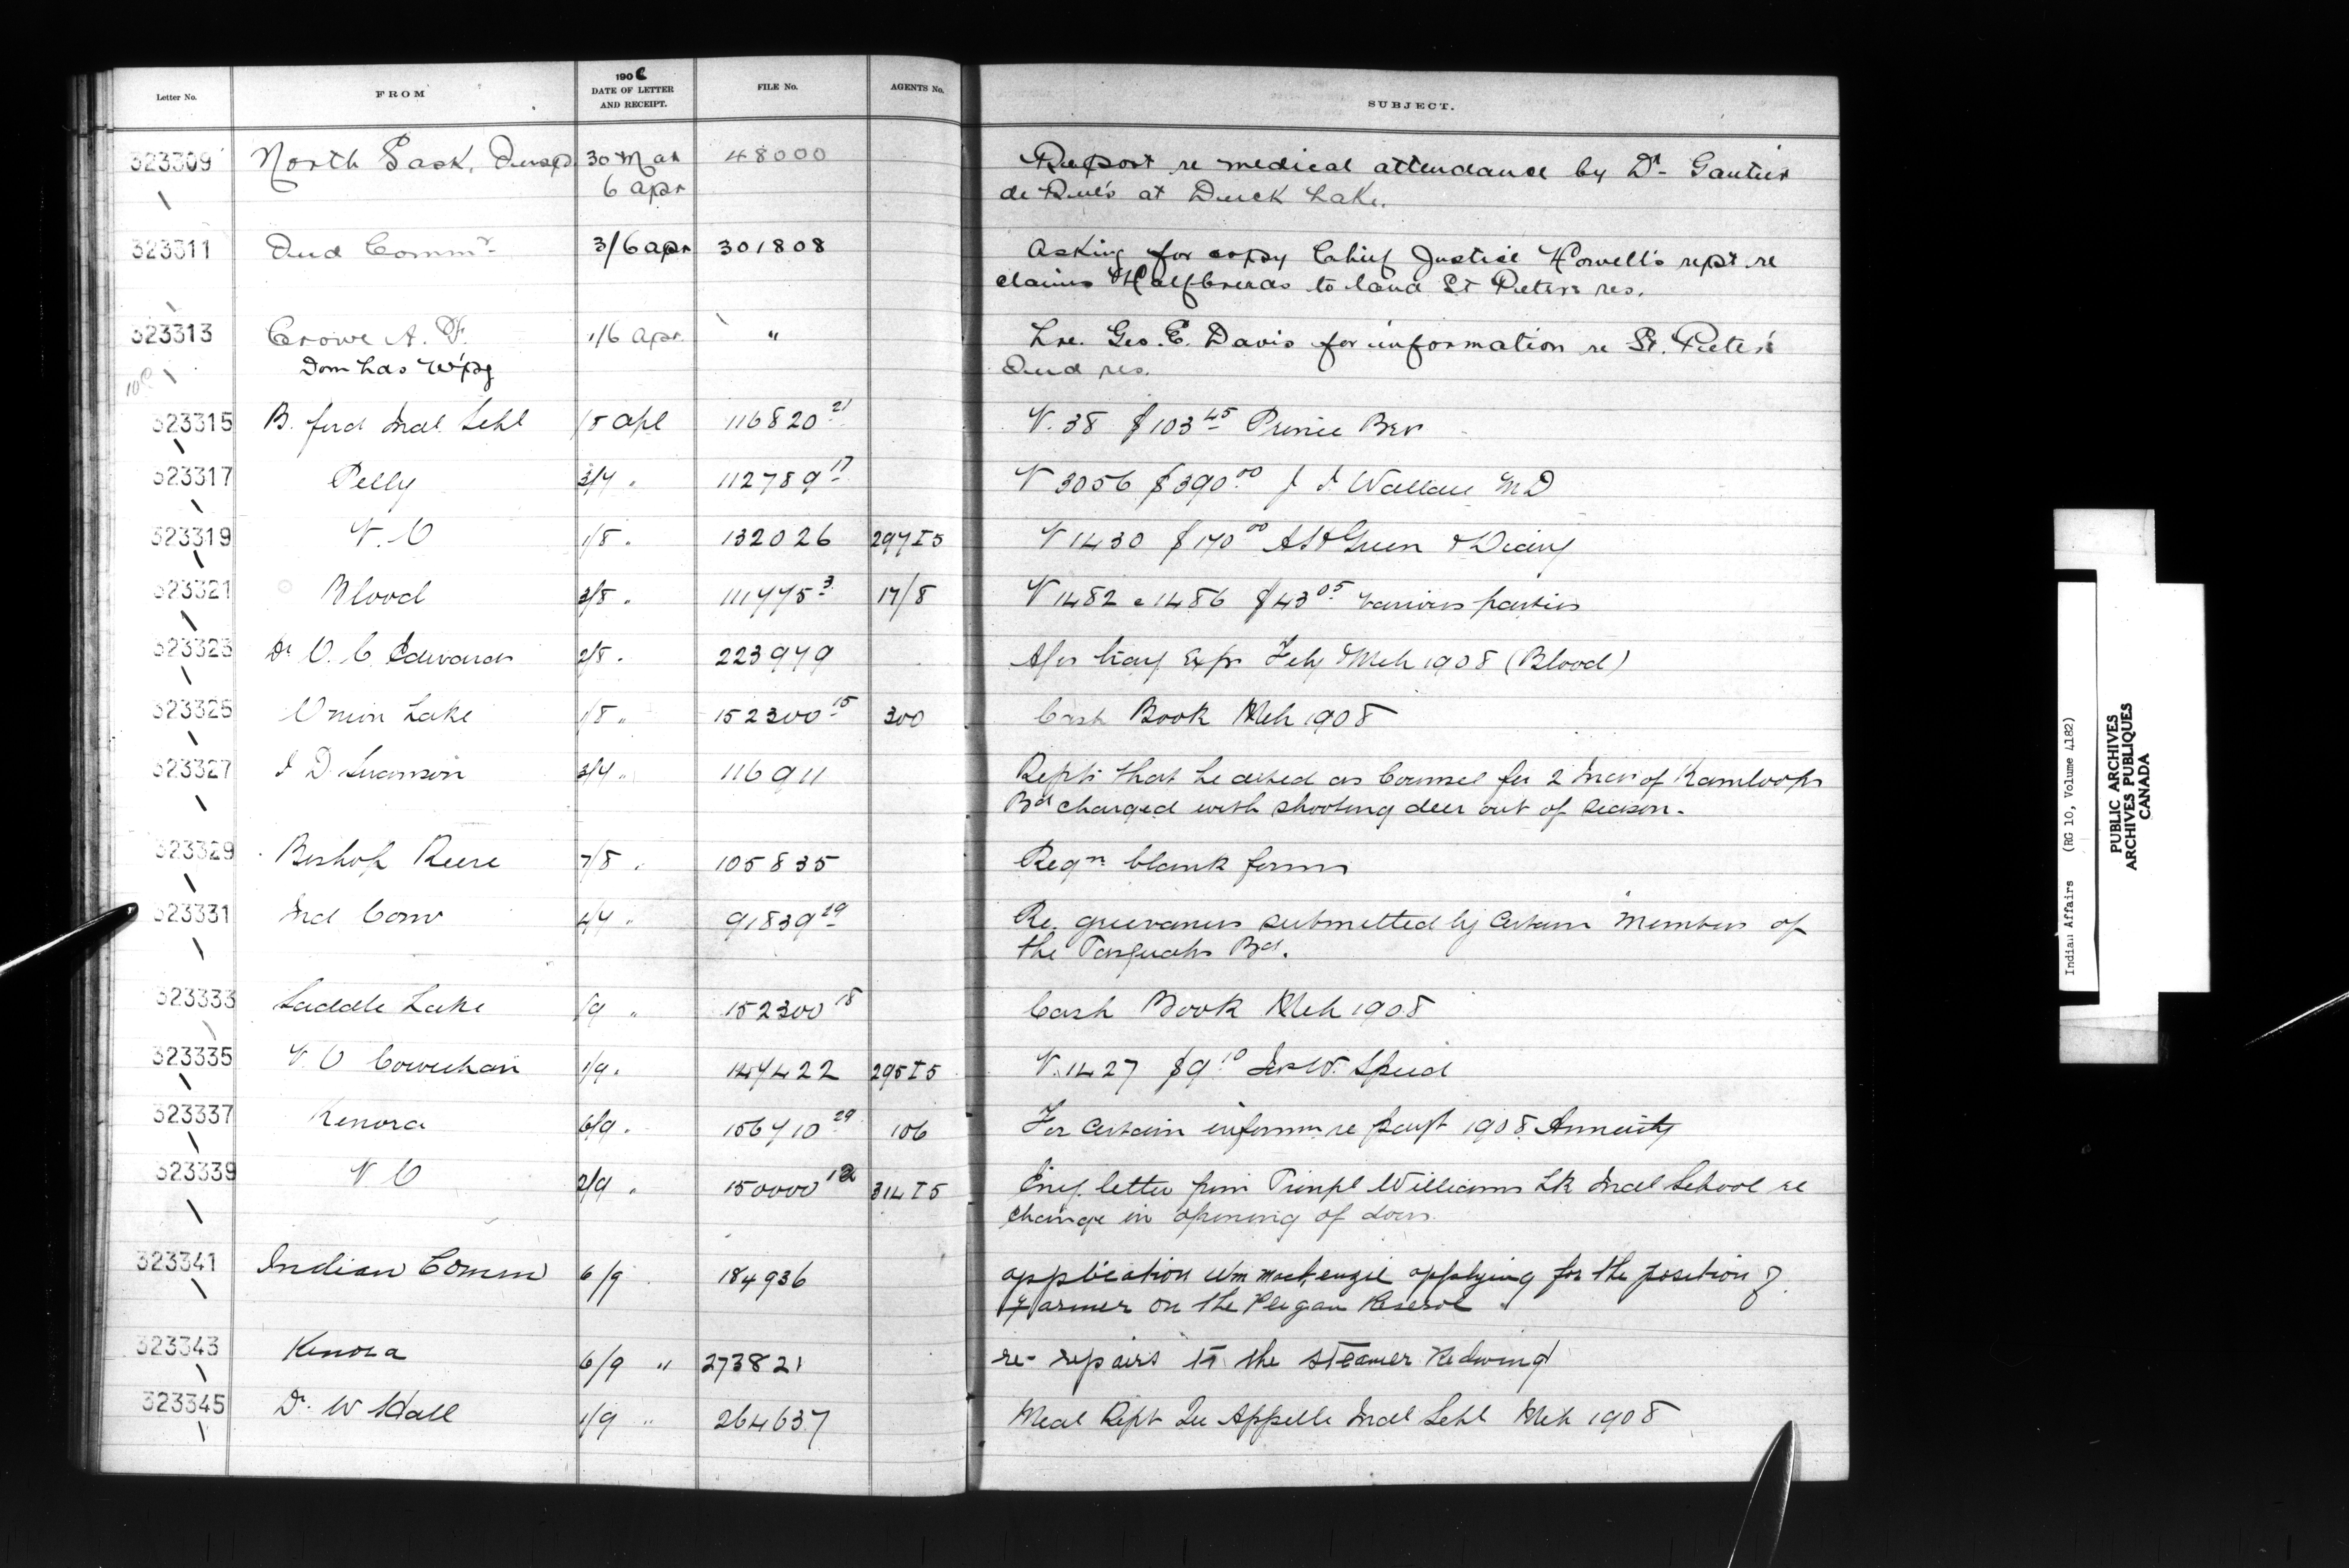 1908
Letter No. FROM DATE OF LETTER AND RECEIPT. FILE No. AGENTS No. SUBJECT.
323309 North Sask. Inspr 30 Mar 48000 Report re medical attendance by Dr Gautier
6 apr de Rue's at Duck Lake.
323311 Ind Commr 3/6 apr 301808 Asking for copy Chief Justice Howell's rept re
claims Halfbreeds to land St Peters res.
323313 Crowe A. W. 1/6 apr. " Lre. Geo. E. Davis for information re St. Peter's
Dom Lds W'pg Ind res.
323315 B. ford Indl Schl /8 Apl 116820 21 V. 38 $103 45 Prince Bros
323317 Pelly 3/7 " 112789 17 V 3056 $390 00 J I Wallace MD
323319 V. O 1/8 " 132026 297 I5 V 1430 $170 00 & Diary
323321 Blood 3/8 " 111775 3 17/8 V 1482 @ 1486 $43 05 various parties
323323 Dr O. C. Edwards 2/8 " 223979 A/cs Trav Exps Feby & Mch 1908 (Blood)
323325 Onion Lake 1/8 " 152300 15 300 Cash Book Mch 1908
323327 J D Swanson 3/7 " 116911 Repts that he acted as Counsel for 2 Inds of Kamloops
Bd charged with shooting deer out of season.
323329 Bishop Reeve 7/8 " 105835 Reqn blank forms
323331 Ind Com 4/7 " 91839 29 Re. grievances submitted by certain Members of
the Pasquahs Bd.
323333 Saddle Lake /9 " 152300 18 Cash Book Mch 1908
323335 V. O Cowichan 1/9 " 147422 295 I5 V. 1427 $9 10 Speed
323337 Kenora 6/9 " 156710 29 106 For certain informn re paymt 1908 Annuity
323339 V O 2/9 " 150000 12 314 I5 Encg. letter from Prinpl Williams Lk Indl School re
change in opening of doors.
323341 Indian Comm 6/9 184936 application Wm Mackenzie applying for the position of
Farmer on the Peigan Reserve.
323343 Kenora 6/9 " 273821 re- repairs to the steamer Redwing
323345 Dr. W Hall 1/9 " 264637 Mcal Rept Qu Appelle Indl Schl Mch 1908
Indian Affairs (RG 10, Volume 4182)
PUBLIC ARCHIVES
ARCHIVES PUBLIQUES
CANADA